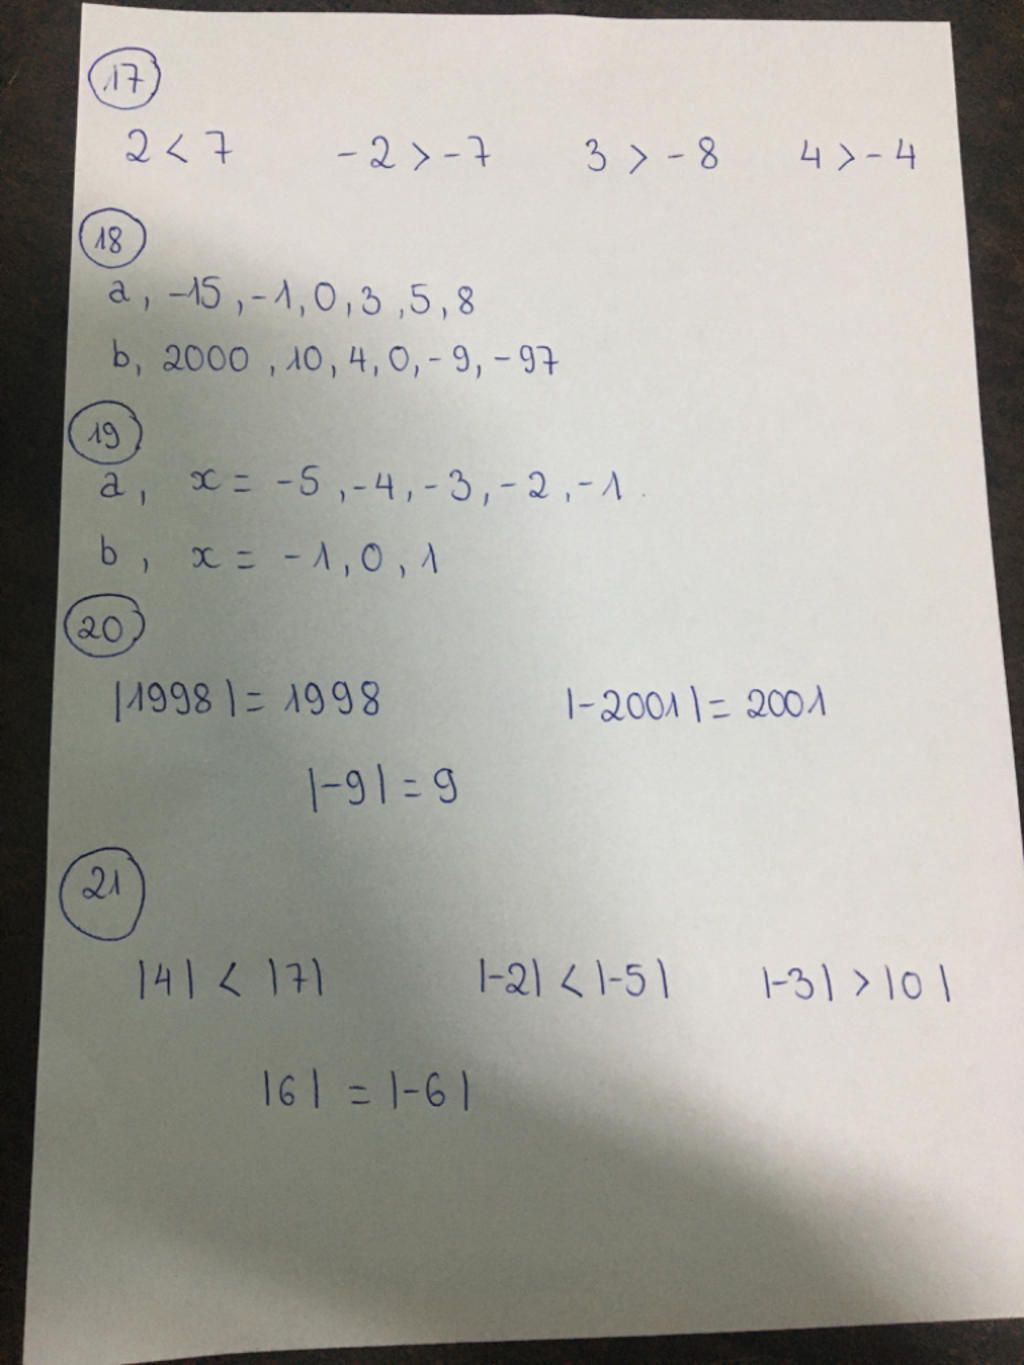 17
2 < 7 -2 > -7 3 > -8 4 > -4
18
a, -15, -1, 0, 3, 5, 8
b, 2000, 10, 4, 0, -9, -97
19
a, x = -5, -4, -3, -2, -1.
b, x = -1, 0, 1
20
|1998| = 1998 |-2001| = 2001
|-9| = 9
21
|4| < |7| |-2| < |-5| |-3| > |0|
|6| = |-6|